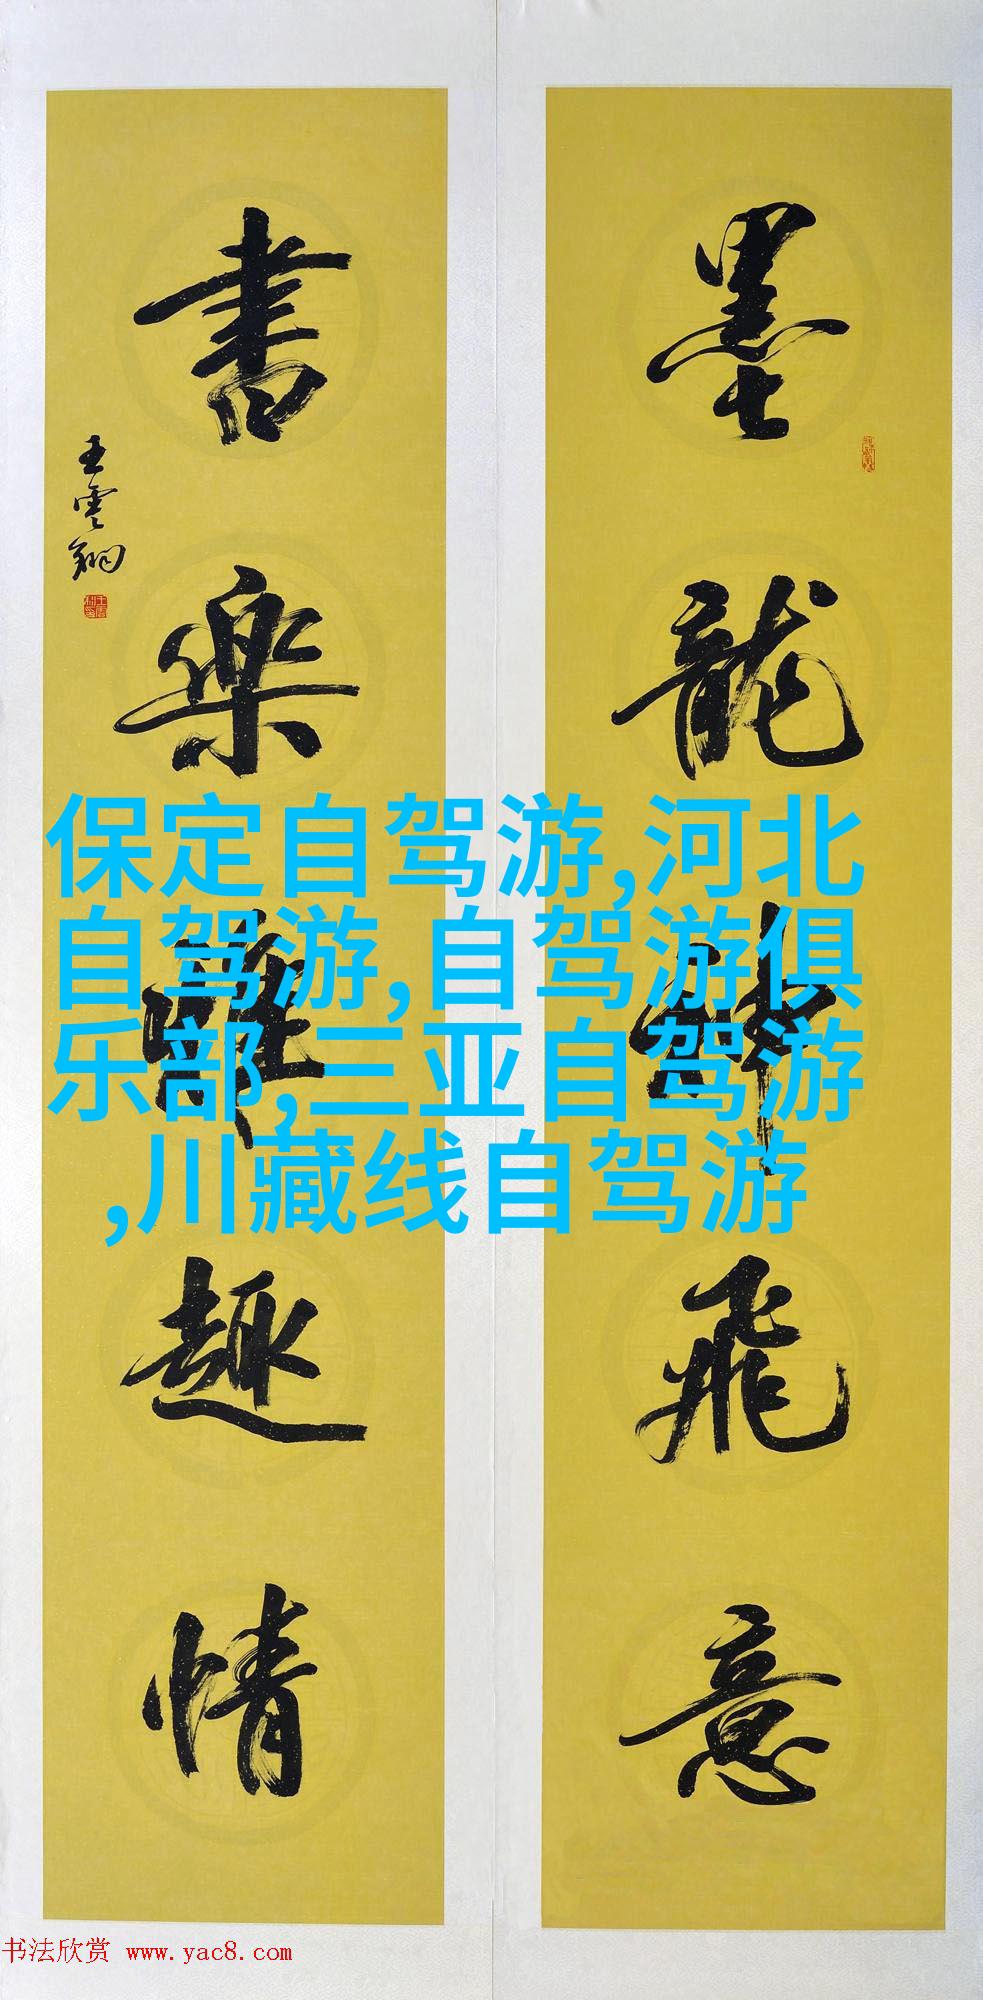 墨龍神飛意
書樂雅趣情
王雲翔
保定自驾游,河北
自驾游,自驾游俱
乐部,三亚自驾游
,川藏线自驾游
书法欣赏 www.yac8.com